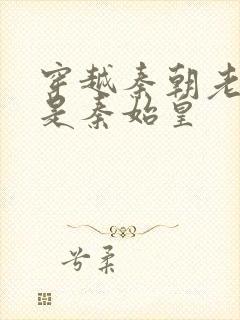 穿越秦朝老
是秦始皇
兮柔